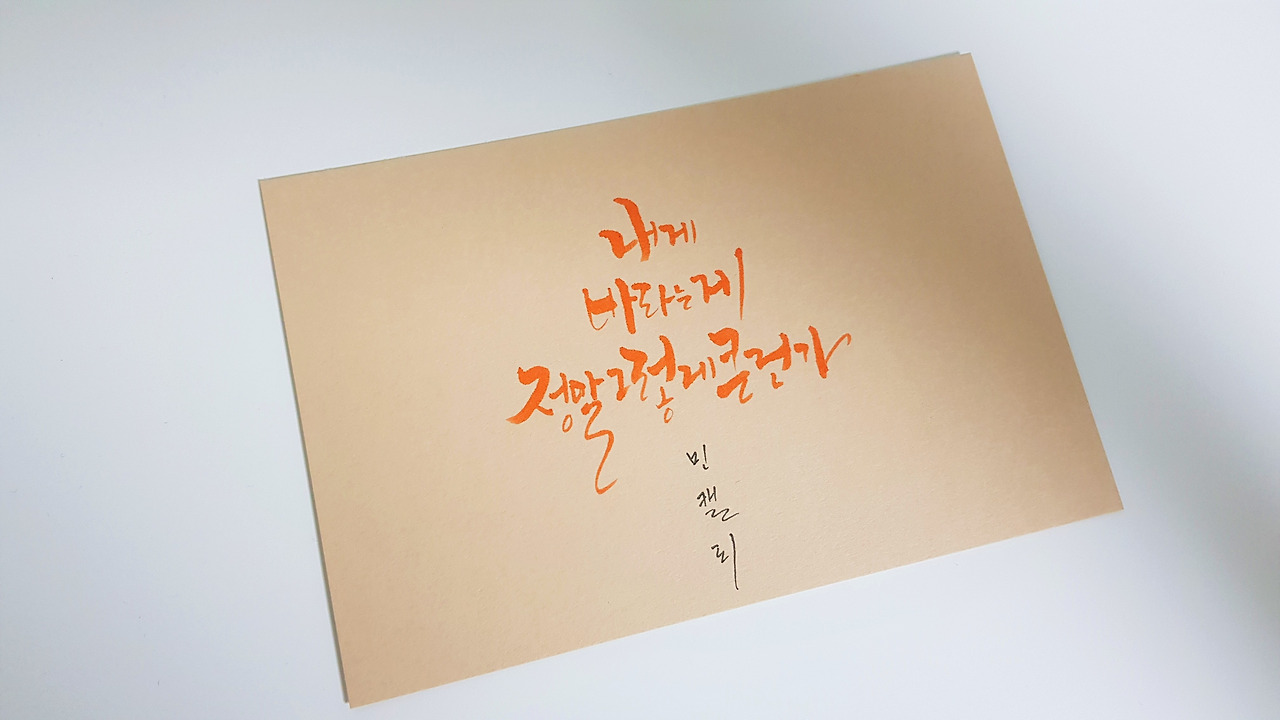 내게
바라는게
정말 그렇게 큰건가
민
캘
리